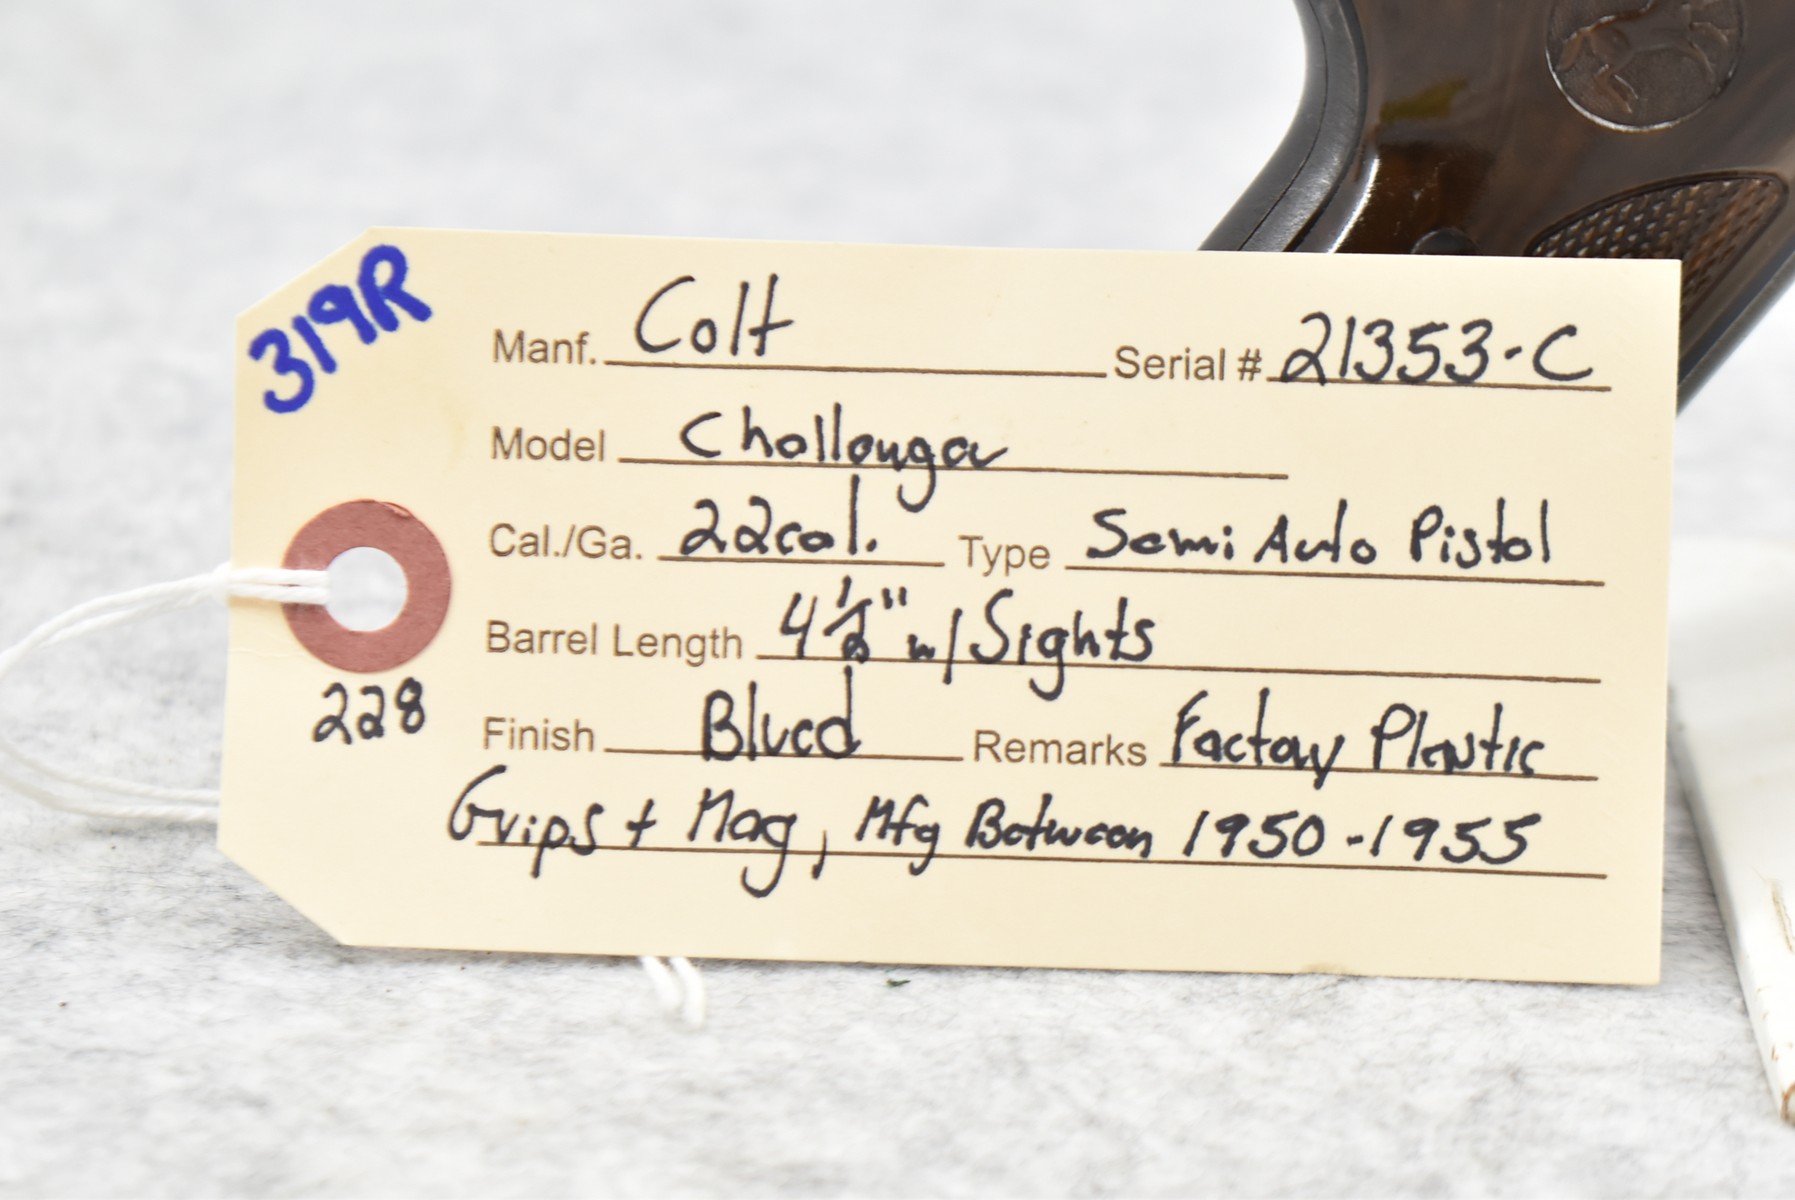 319R
Manf. Colt Serial # 21353-C
Model Challenger
Cal./Ga. 22cal. Type Semi Auto Pistol
Barrel Length 4 1/2" w/ Sights
228
Finish Blued Remarks Factory Plastic
Grips + Mag, Mfg Between 1950-1955